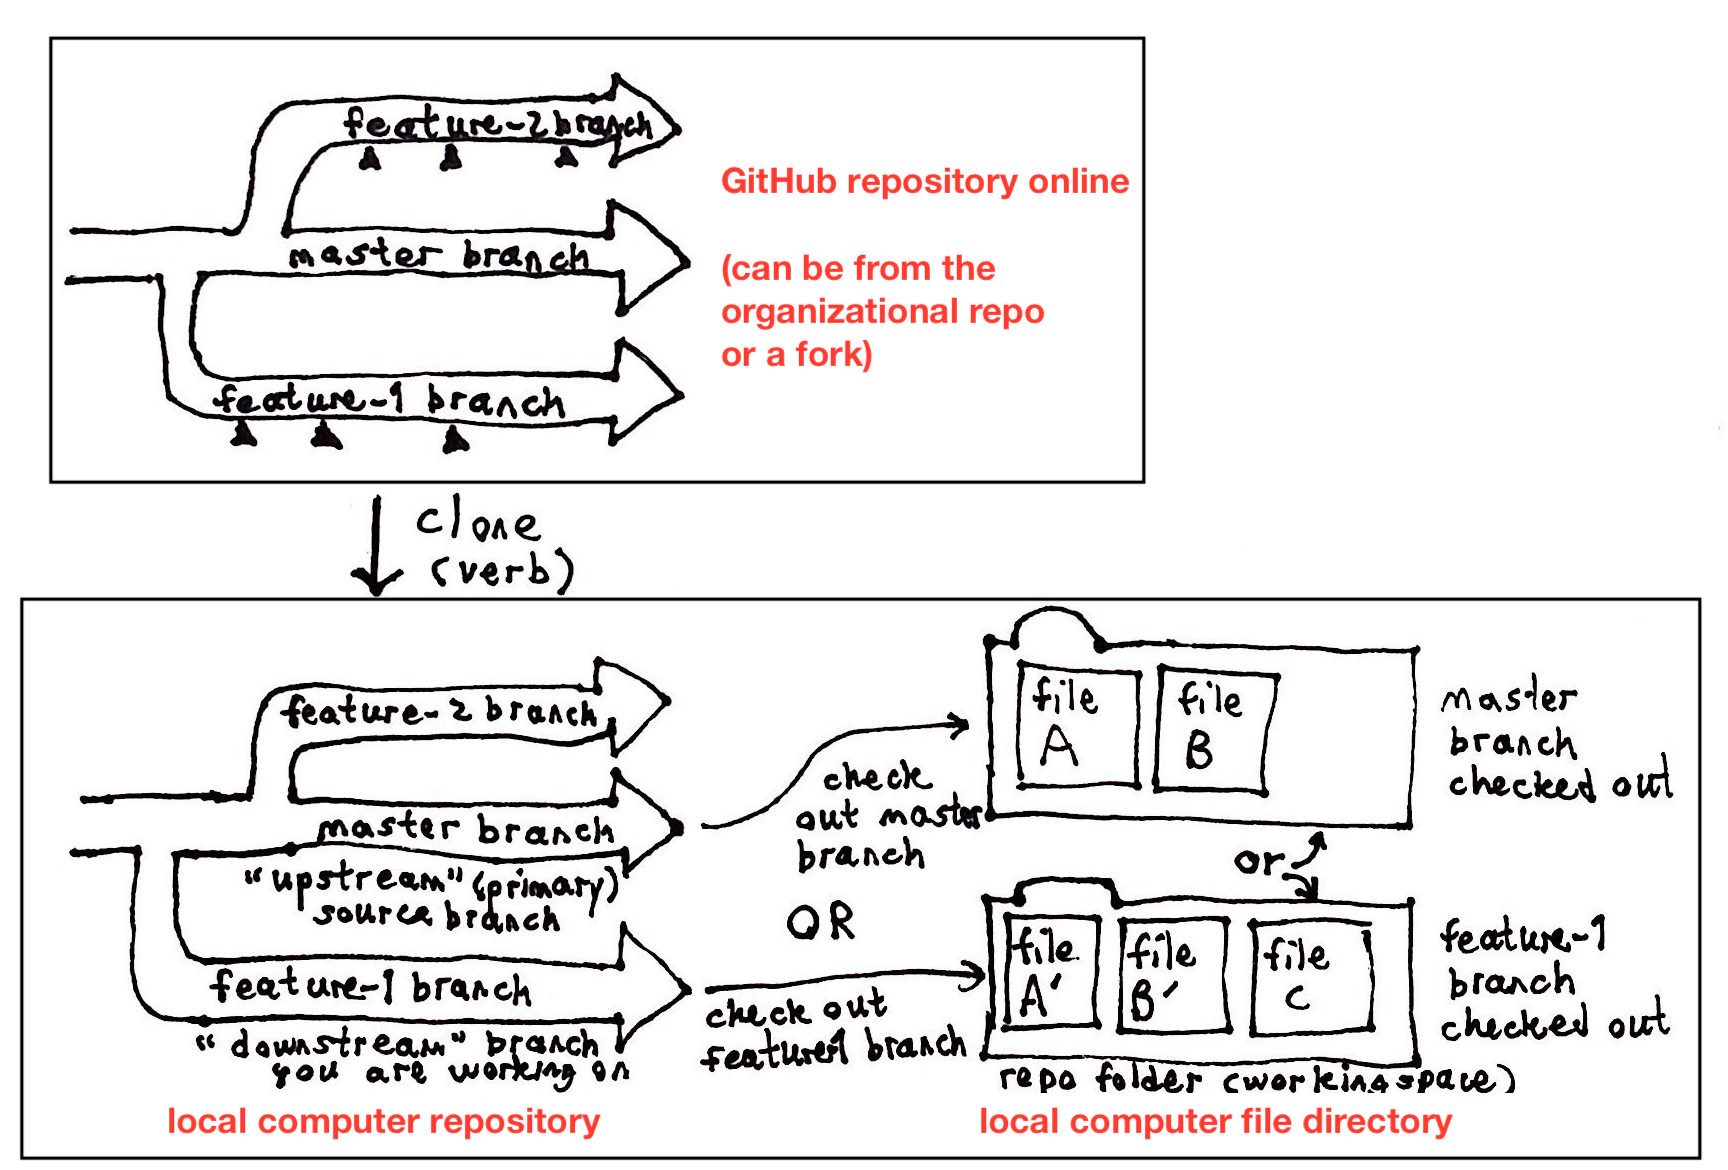 feature-2 branch
GitHub repository online
master branch
(can be from the
organizational repo
or a fork)
feature-1 branch
clone
(verb)
feature-2 branch
master branch
"upstream" (primary)
source branch
feature-1 branch
"downstream" branch
you are working on
local computer repository
check
out master
branch
OR
check out
feature-1 branch
file
A
file
B
master
branch
checked out
or
file
A'
file
B'
file
C
feature-1
branch
checked out
repo folder (workingspace)
local computer file directory